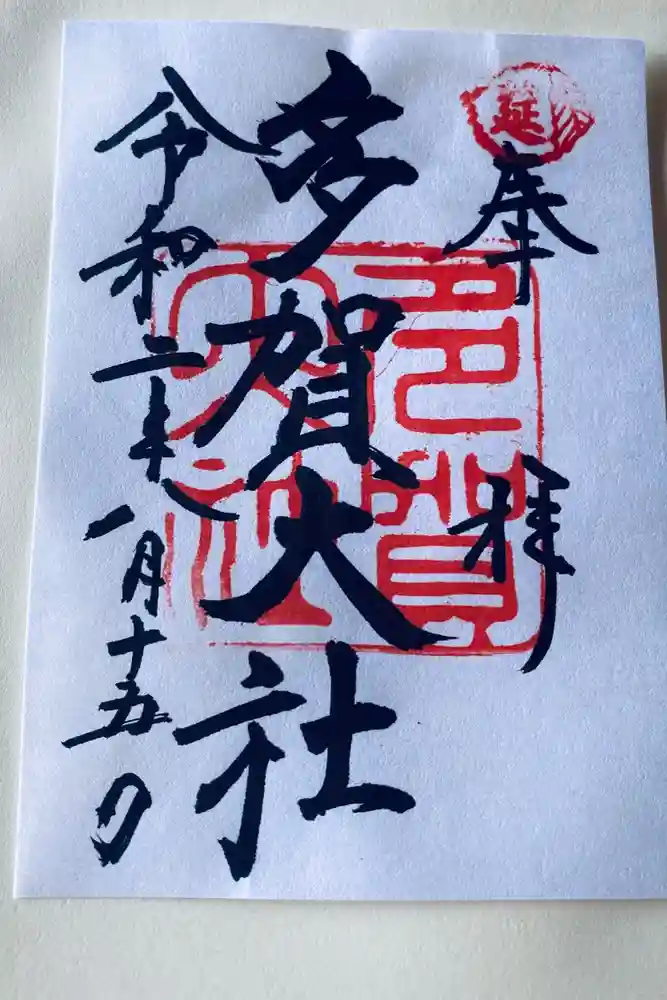 延
奉拝
多賀大社
多賀
大社
令和二年一月十五日